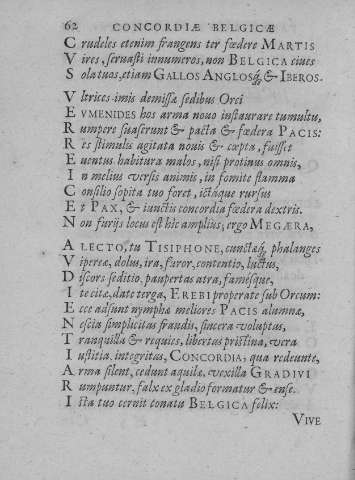 62 CONCORDIÆ BELGICÆ
Crudeles etenim frangens ter fœdere MARTIS
Vires, seruasti innumeros, non BELGICA ciues
Solatuos, etiam GALLOS ANGLOSq́, & IBEROS.
Vltrices imis demissæ sedibus Orci
EVMENIDES hos arma nouo instaurare tumultu,
Rumpere suaserunt & pacta & fœdera PACIS:
Res stimulis agitata nouis & cœpta, fuisset
Euentus habitura malos, nisi protinus omnis,
In melius versis animis, in fomite flamma
Consilio sopita tuo foret, ictaque rursus
Et PAX, & iunctis concordia fœdera dextris.
Non furijs locus est hic amplius; ergo MEGÆRA,
ALECTO, tu TISIPHONE, cunctæq́, phalanges
Vipereæ, dolus, ira, furor, contentio, luctus,
Discors seditio, paupertas atra, famesque,
Ite citæ, date terga, EREBI properate sub Orcum:
Ecce adsunt nymphæ meliores PACIS alumnæ,
Nescia simplicitas fraudis, sincera voluptas,
Tranquilla & requies, libertas pristina, vera
Iustitia, integritas, CONCORDIA; qua redeunte,
Arma silent, cedunt aquilæ, vexilla GRADIVI
Rumpuntur, falx ex gladio formatur & ense.
Ista tuo cernit conatu BELGICA felix:
VIVE